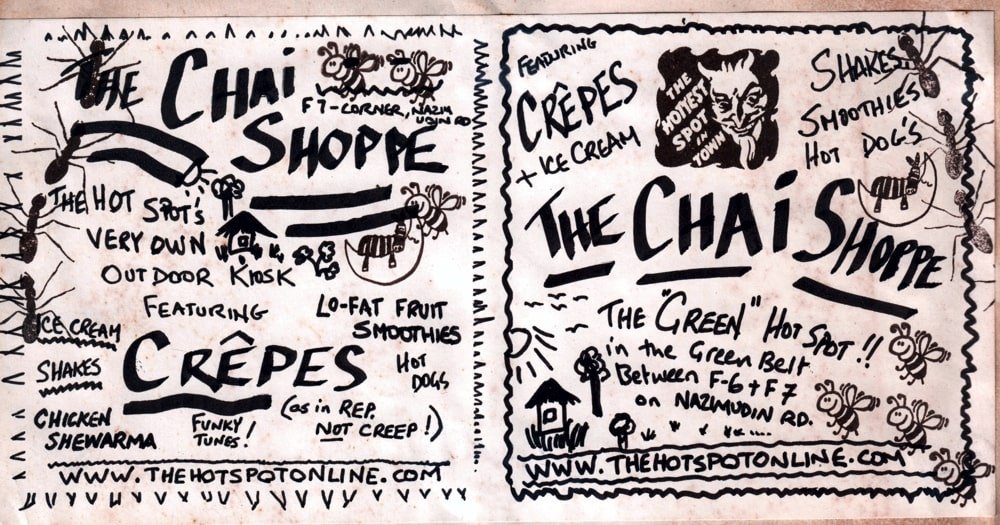 THE CHAI
F7-CORNER, NAZIM
UDIN RD
SHOPPE
THE HOT
SPOT'S
VERY OWN
OUTDOOR KIOSK
FEATURING
LO-FAT FRUIT
SMOOTHIES
ICE CREAM
CRÊPES
HOT
DOGS
SHAKES
(as in REP,
NOT CREEP!)
CHICKEN
SHEWARMA
FUNKY
TUNES!
WWW.THEHOTSPOTONLINE.COM
FEATURING
CRÊPES
+ ICE CREAM
THE
HONEST
SPOT
IN
TOWN
SHAKES
SMOOTHIES
HOT DOG'S
THE CHAI SHOPPE
THE "GREEN" HOT SPOT!!
in the Green Belt
Between F-6 + F7
on NAZIMUDIN RD.
WWW.THEHOTSPOTONLINE.COM